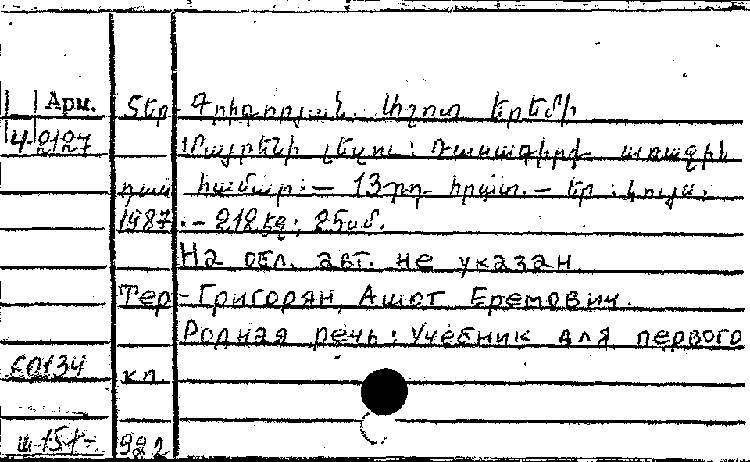 Арм. Տեր-Գրիգորյան, Աշոտ Երեմի
Ч 2127 Մայրենի լեզու: Դասագիրք առաջին
դաս. համար.— 13-րդ հրատ.— Եր.: Լույս,
1987.— 212 էջ; 25 սմ.
На обл. авт. не указан.
Тер-Григорян, Ашот Еремович.
Родная речь: Учебник для первого
60134 кл.
992